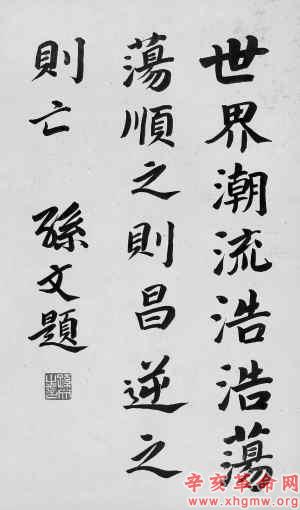 世界潮流浩浩蕩
蕩順之則昌逆之
則亡 孫文題
辛亥革命网
www.xhgmw.org